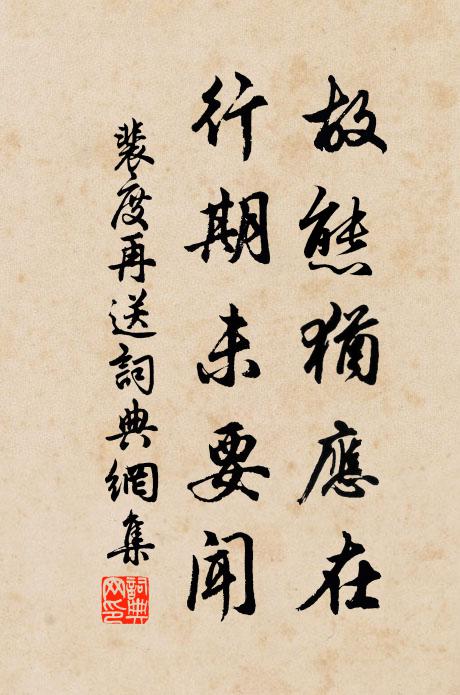 故態猶應在
行期未要聞
裴度再送詞典網集
詞典网印